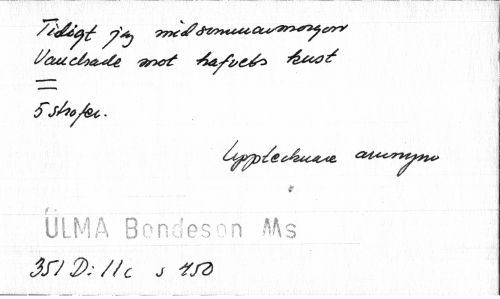 Tidigt jag midsommarmorgon
Vandrade mot hafvets kust
=
5 strofer.
Upptecknare anonym
ÜLMA Bondeson Ms
351 D: 11 c s 450